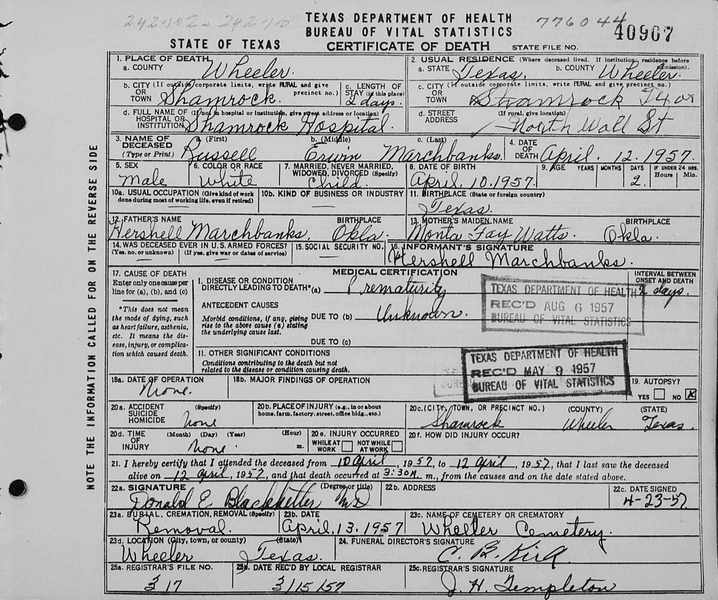 TEXAS DEPARTMENT OF HEALTH
BUREAU OF VITAL STATISTICS
776044
40907
STATE OF TEXAS
CERTIFICATE OF DEATH
STATE FILE NO.
NOTE THE INFORMATION CALLED FOR ON THE REVERSE SIDE
1. PLACE OF DEATH
a. COUNTY Wheeler
2. USUAL RESIDENCE (Where deceased lived. If institution, residence before admission)
a. STATE Texas b. COUNTY Wheeler
b. CITY (If outside corporate limits, write RURAL and give precinct no.)
OR TOWN Shamrock
c. LENGTH OF STAY (in this place)
2 days
c. CITY (If outside corporate limits, write RURAL and give precinct no.)
OR TOWN Shamrock
d. FULL NAME OF (If not in hospital or institution, give street address or location)
HOSPITAL OR INSTITUTION Shamrock Hospital
d. STREET ADDRESS (If rural, give location)
North Wall St
3. NAME OF DECEASED (Type or Print)
a. (First) Russell
b. (Middle) Erwin
c. (Last) Marchbanks
4. DATE OF DEATH April. 12. 1957
5. SEX
Male
6. COLOR OR RACE
White
7. MARRIED, NEVER MARRIED, WIDOWED, DIVORCED (Specify)
Child
8. DATE OF BIRTH
April. 10. 1957
9. AGE YEARS MONTHS DAYS IF UNDER 24 HRS.
2
10a. USUAL OCCUPATION (Give kind of work done during most of working life, even if retired)
10b. KIND OF BUSINESS OR INDUSTRY
11. BIRTHPLACE (State or foreign country)
Texas
12. FATHER'S NAME BIRTHPLACE
Hershell Marchbanks, Okla.
13. MOTHER'S MAIDEN NAME BIRTHPLACE
Monta Fay Watts. Okla.
14. WAS DECEASED EVER IN U.S. ARMED FORCES?
(Yes, no, or unknown) (If yes, give war or dates of service)
15. SOCIAL SECURITY NO.
16. INFORMANT'S SIGNATURE
Hershell Marchbanks.
17. CAUSE OF DEATH
Enter only one cause per line for (a), (b), and (c)
*This does not mean the mode of dying, such as heart failure, asthenia, etc. It means the disease, injury, or complication which caused death.
MEDICAL CERTIFICATION
INTERVAL BETWEEN ONSET AND DEATH
1. DISEASE OR CONDITION DIRECTLY LEADING TO DEATH* (a) Prematurity
2 days.
ANTECEDENT CAUSES
Morbid conditions, if any, giving rise to the above cause (a) stating the underlying cause last.
DUE TO (b) Unknown
DUE TO (c)
TEXAS DEPARTMENT OF HEALTH
REC'D AUG 6 1957
BUREAU OF VITAL STATISTICS
11. OTHER SIGNIFICANT CONDITIONS
Conditions contributing to the death but not related to the disease or condition causing death.
TEXAS DEPARTMENT OF HEALTH
REC'D MAY 9 1957
BUREAU OF VITAL STATISTICS
18a. DATE OF OPERATION
None.
18b. MAJOR FINDINGS OF OPERATION
19. AUTOPSY?
YES NO X
20a. ACCIDENT SUICIDE HOMICIDE (Specify)
None
20b. PLACE OF INJURY (e.g., in or about home, farm, factory, street, office bldg., etc.)
20c. (CITY, TOWN, OR PRECINCT NO.) (COUNTY) (STATE)
Shamrock Wheeler Texas.
20d. TIME OF INJURY (Month) (Day) (Year) (Hour)
None. m.
20e. INJURY OCCURRED
WHILE AT WORK NOT WHILE AT WORK
20f. HOW DID INJURY OCCUR?
21. I hereby certify that I attended the deceased from 10 April, 1957, to 12 April, 1957, that I last saw the deceased
alive on 12 April, 1957, and that death occurred at m., from the causes and on the date stated above.
22a. SIGNATURE (Degree or title)
Donald E. Blackketter MD
22b. ADDRESS
22c. DATE SIGNED
4-23-57
23a. BURIAL, CREMATION, REMOVAL (Specify)
Removal.
23b. DATE
April. 13. 1957
23c. NAME OF CEMETERY OR CREMATORY
Wheeler Cemetery.
23d. LOCATION (City, town, or county) (State)
Wheeler Texas.
24. FUNERAL DIRECTOR'S SIGNATURE
C. B. Kirk
25a. REGISTRAR'S FILE NO.
317
25b. DATE REC'D BY LOCAL REGISTRAR
3/15/57
25c. REGISTRAR'S SIGNATURE
J. H. Templeton